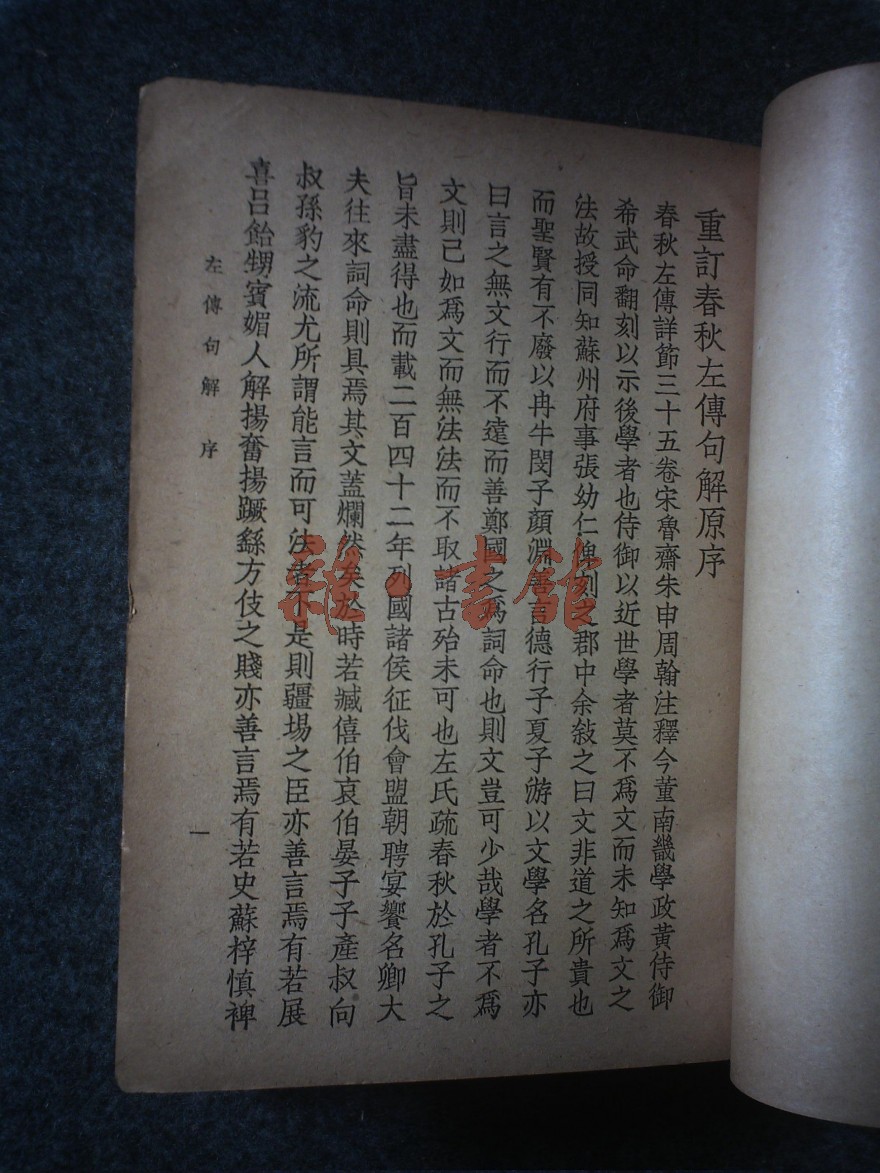 重訂春秋左傳句解原序
春秋左傳詳節三十五卷宋魯齋朱申周翰注釋今董南畿學政黃侍御
希武命翻刻以示後學者也侍御以近世學者莫不爲文而未知爲文之
法故授同知蘇州府事張幼仁俾刻之郡中余敍之曰文非道之所貴也
而聖賢有不廢以冉牛閔子顏淵善言德行子夏子游以文學名孔子亦
曰言之無文行而不遠而善鄭國之爲詞命也則文豈可少哉學者不爲
文則已如爲文而無法法而不取諸古殆未可也左氏疏春秋於孔子之
旨未盡得也而載二百四十二年列國諸侯征伐會盟朝聘宴饗名卿大
夫往來詞命則具焉其文蓋爛然矣於時若臧僖伯哀伯晏子子產叔向
叔孫豹之流尤所謂能言而可法者不是則疆場之臣亦善言焉有若展
喜呂飴甥賓媚人解揚奮揚蹶繇方伎之賤亦善言焉有若史蘇梓慎裨
左傳句解 序
一
雜·書館